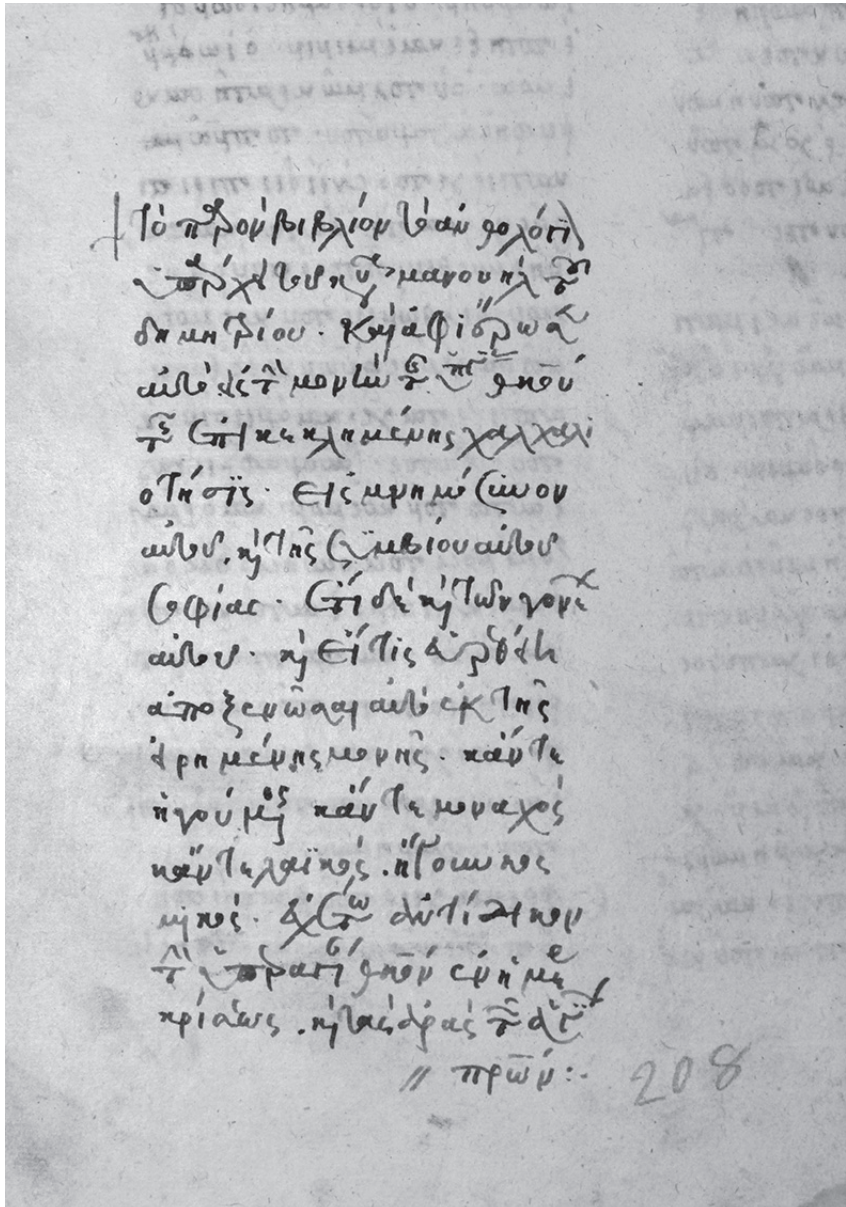 † Τὸ παρὸν βιβλίον τὸ ἀνθολόγι
ὑπάρχει μανουὴλ τοῦ
δημητρίου · καὶ ἀφιέρωσ
αὐτὸ εἰς τὴν μονὴν τῆς θκου
τῆς ἐπικεκλημένης χαλκαλι
οτήσης · εἰς μνημόσυνον
αὐτοῦ, καὶ τῆς συμβίου αὐτοῦ
σοφίας · ἔτι δὲ καὶ τῶν γονέ
αὐτοῦ · καὶ εἴ τις
ἀποξενῶσαι αὐτὸ ἐκ τῆς
εἰρημένης μονῆς · κἄν τε
ἡγούμενος κἄν τε μοναχὸς
κἄν τε λαϊκὸς · ἢ
ἐχέτω ἀντίδικον
τὴν ὑπεραγίαν θκον ἐν ἡμέ
κρίσεως · καὶ τὰς ἀρὰς τῶν ἁγίων
πρων :·
208